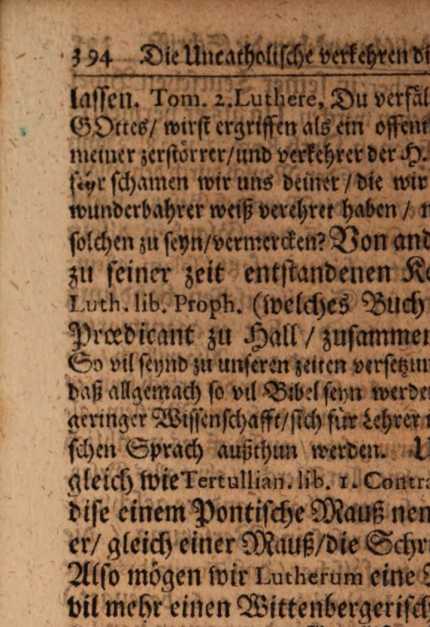 394 Die Uncatholische verkehren di
lassen. Tom. 2. Luthere, Du verfäl
GOttes/ wirst ergriffen als ein offent
meiner zerstörrer/und verkehrer der H.
sehr schamen wir uns deiner / die wir
wunderbahrer weiß verehret haben /
solchen zu seyn/vermercken? Von and
zu seiner zeit entstandenen Ke
Luth. lib. Proph. (welches Buch
Prædicant zu Hall / zusammen
So vil seynd zu unseren zeiten versetzun
daß allgemach so vil Bibel seyn werde
geringer Wissenschafft/sich für Lehrer
schen Sprach außthun werden.
gleich wie Tertullian. lib. 1. Contra
dise einem Pontische Mauß nen
er/ gleich einer Mauß/die Schr
Also mögen wir Lutherum eine
vil mehr einen Wittenbergerisch